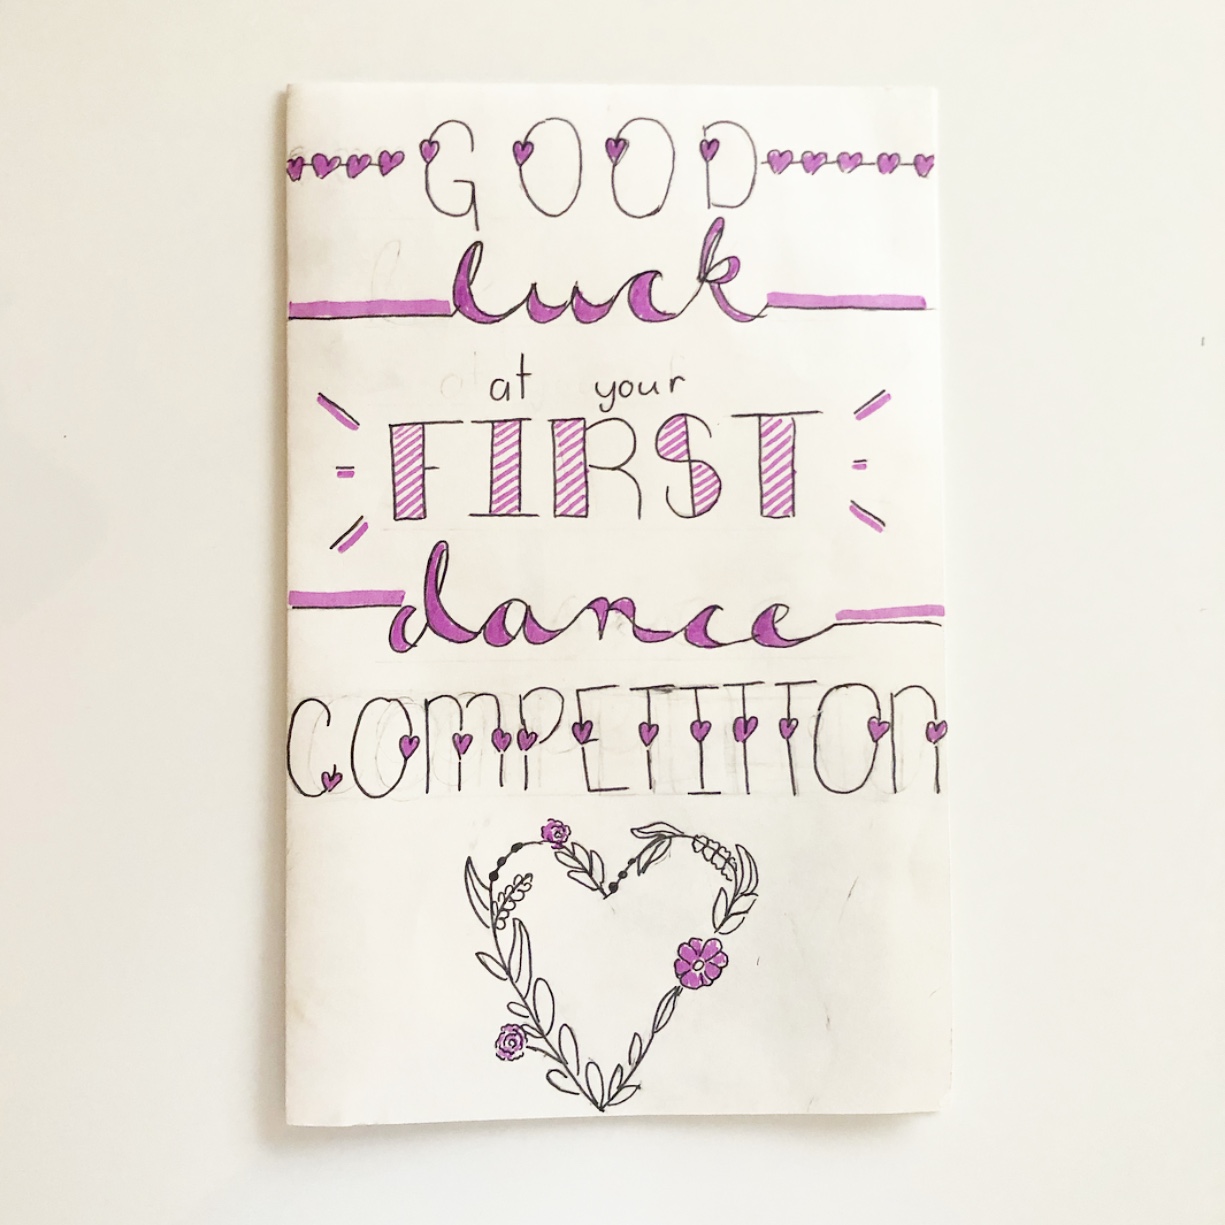 GOOD
luck
at your
FIRST
dance
COMPETITION